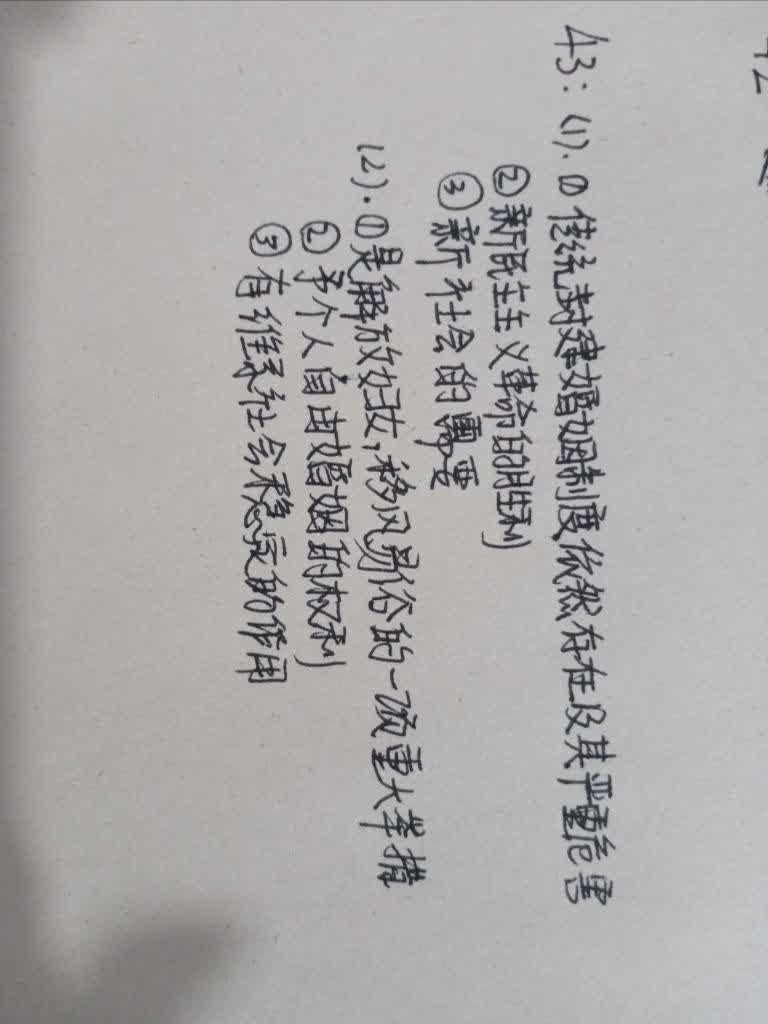 43: (1). ① 传统封建婚姻制度依然存在及其严重危害
② 新民主主义革命的胜利
③ 新社会的需要
(2). ① 是解放妇女,移风易俗的一项重大举措
② 予个人自由婚姻的权利
③ 有维系社会稳定的作用